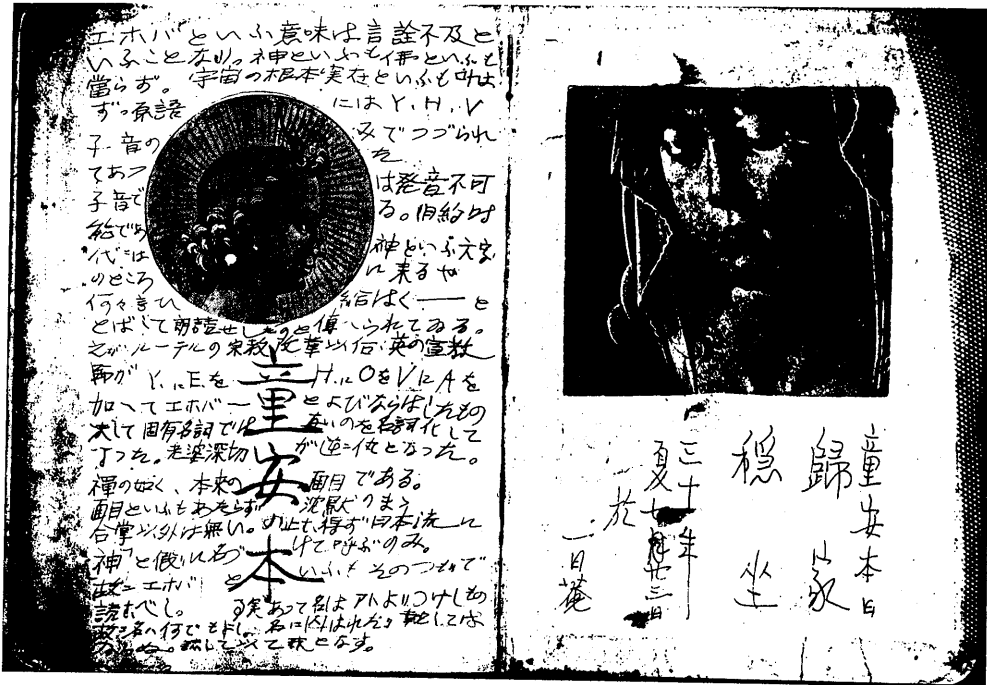 エホバといふ意味は言詮不及と
いふことなり。神といふも佛といふも
當らず。宇宙の根本実在といふも叶は
ず。原語にはY.H.V
子音のみでつづられ
てあつた
子音では発音不可
能である。旧約時
代には神といふ文字
のところに来るや
何々言ひ給はく——と
とばして朗読せしものと傳へられてゐる。
之がルーテルの宗教改革以后、英の宣教
師がY.にE.をH.にOをVにAを
加へてエホバ—とよびならはしたもの
決して固有名詞では無いのを名詞化して
了つた。老婆深切が逆に仇となつた。
禅の如く、本来の面目である。
面目といふもあたらず沈黙のまゝ
合掌以外は無い。止むを得ず日本流に
「神」と假に名づけて呼ぶのみ。
故にエホバといふもそのつもりで
読むべし。実あつて名はアトよりつけしもの
故に名は何でもよし。名に囚はれ
童安本
童安本日
歸家
穏坐
三十年
夏七月廿三日
於
一日菴